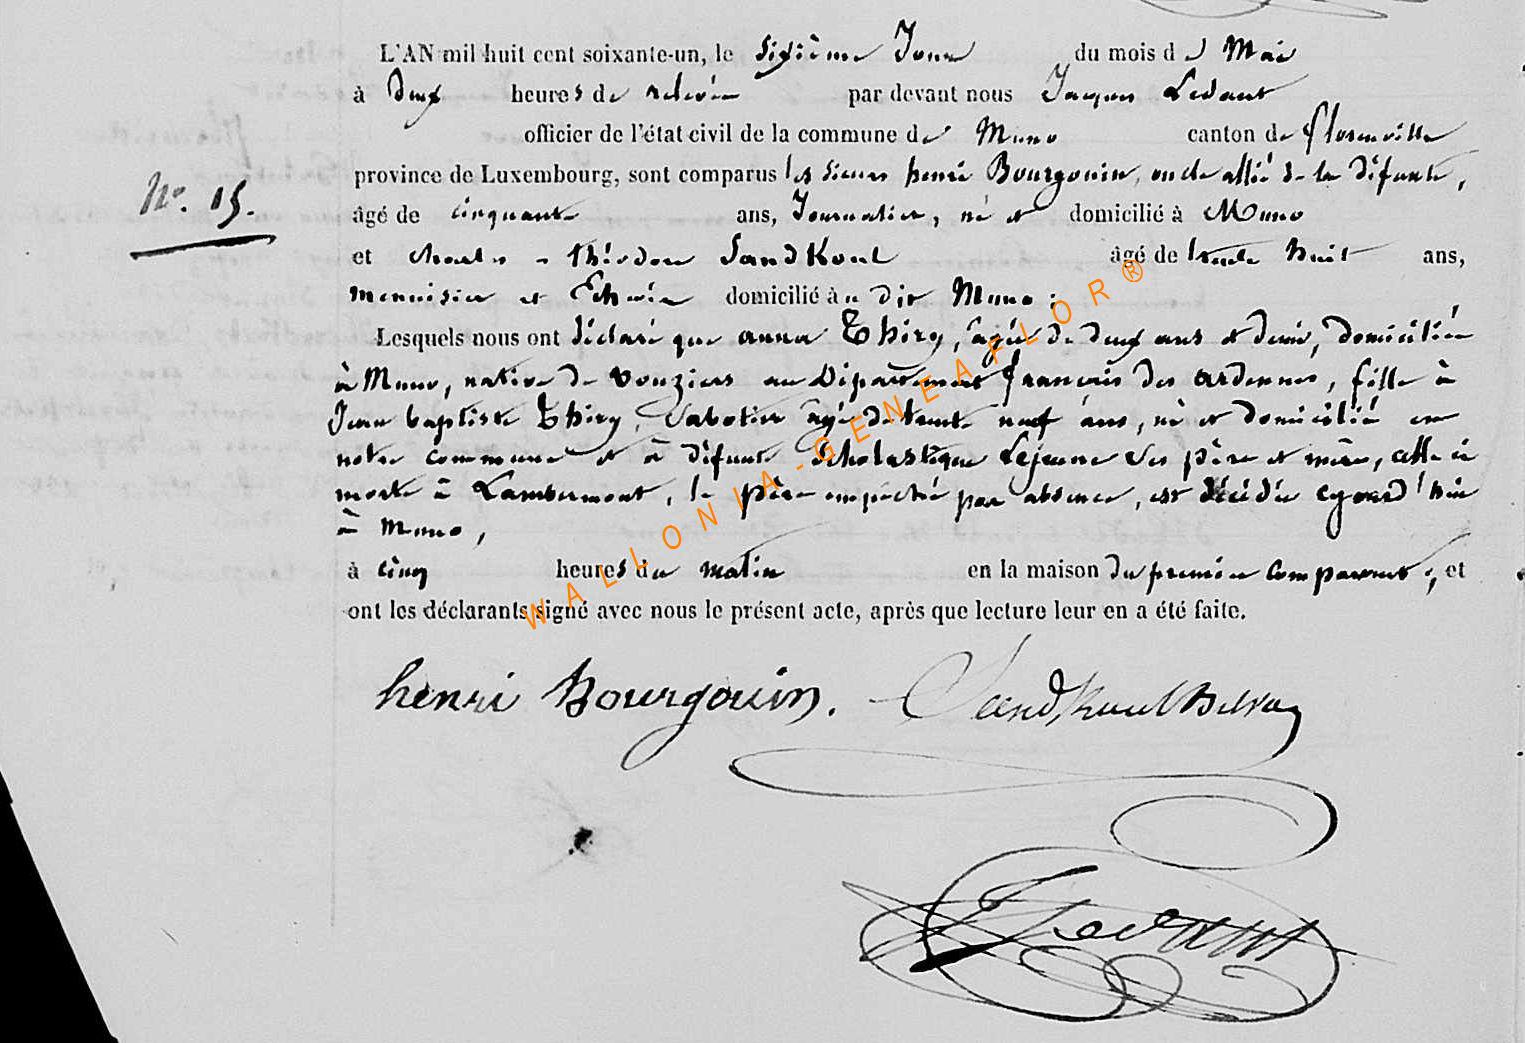 L'AN mil huit cent soixante-un, le sixième Jour du mois de Mai
à deux heures de relevée par devant nous Jacques Ledant
officier de l'état civil de la commune de Muno canton de florenville
province de Luxembourg, sont comparus les sieurs henri Bourgouin, oncle allié de la défunte,
N°. 15.
âgé de cinquante ans, Journalier, né et domicilié à Muno
et charles - théodore Sandkoul âgé de trente huit ans,
menuisier et domicilié à dit Muno ;
Lesquels nous ont déclaré que anna Thiry, âgée de deux ans et demi, domiciliée
à Muno, native de vouziers au Département français des ardennes, fille à
Jean baptiste Thiry, Sabotier âgé de trente neuf ans, né et domicilié en
notre commune et à défunte Scholastique Lejeune ses père et mère, celle ci
morte à Lambermont, le père empêché par absence, est décédée cejourd'hui
à Muno,
à cinq heures du matin en la maison du premier comparant ; et
ont les déclarants signé avec nous le présent acte, après que lecture leur en a été faite.
henri Bourgouin. Sandkoul
Ledant
WALLONIA-GENEAFLOR®